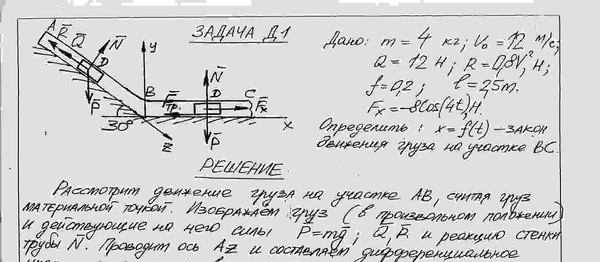 ЗАДАЧА Д.1
Дано: m = 4 кг; V₀ = 12 м/с;
Q = 12 Н; R = 0,8V², Н;
f = 0,2; l = 2,5 м.
Fx = -8cos(4t), Н.
Определить: x = f(t) – закон
движения груза на участке BC.
A R̄ Q̄ N̄ D P̄ y B F̄тр. N̄ D C F̄x x P̄ 30° z
РЕШЕНИЕ
Рассмотрит движение груза на участке AB, считая груз
материальной точкой. Изображаем груз (в произвольном положении)
и действующие на него силы P̄=mḡ; Q̄, R̄ и реакцию стенки
трубы N̄. Проводит ось Az и составляет дифференциальное